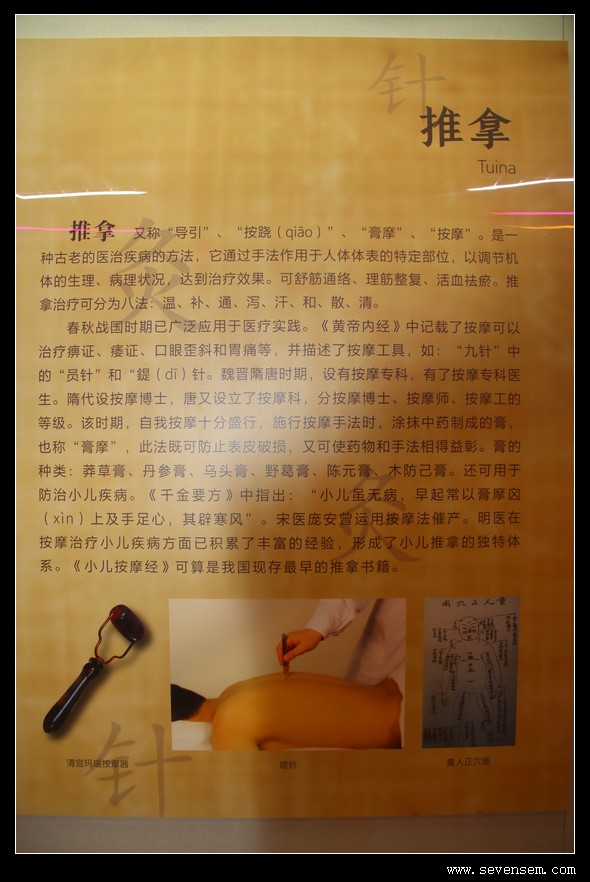 针
推拿
Tuina
灸
推拿 又称“导引”、“按跷（qiāo）”、“膏摩”、“按摩”。是一
种古老的医治疾病的方法，它通过手法作用于人体体表的特定部位，以调节机
体的生理、病理状况，达到治疗效果。可舒筋通络、理筋整复、活血祛瘀。推
拿治疗可分为八法：温、补、通、泻、汗、和、散、清。
春秋战国时期已广泛应用于医疗实践。《黄帝内经》中记载了按摩可以
治疗痹证、痿证、口眼歪斜和胃痛等，并描述了按摩工具，如：“九针”中
的“员针”和“鍉（dī）针。魏晋隋唐时期，设有按摩专科，有了按摩专科医
生。隋代设按摩博士，唐又设立了按摩科，分按摩博士、按摩师、按摩工的
等级。该时期，自我按摩十分盛行，施行按摩手法时，涂抹中药制成的膏，
也称“膏摩”，此法既可防止表皮破损，又可使药物和手法相得益彰。膏的
种类：莽草膏、丹参膏、乌头膏、野葛膏、陈元膏、木防己膏。还可用于
防治小儿疾病。《千金要方》中指出：“小儿虽无病，早起常以膏摩囟
（xìn）上及手足心，其辟寒风”。宋医庞安曾运用按摩法催产。明医在
按摩治疗小儿疾病方面已积累了丰富的经验，形成了小儿推拿的独特体
系。《小儿按摩经》可算是我国现存最早的推拿书籍。
灸
针
清宫玛瑙按摩器
童人正穴图
www.sevensem.com